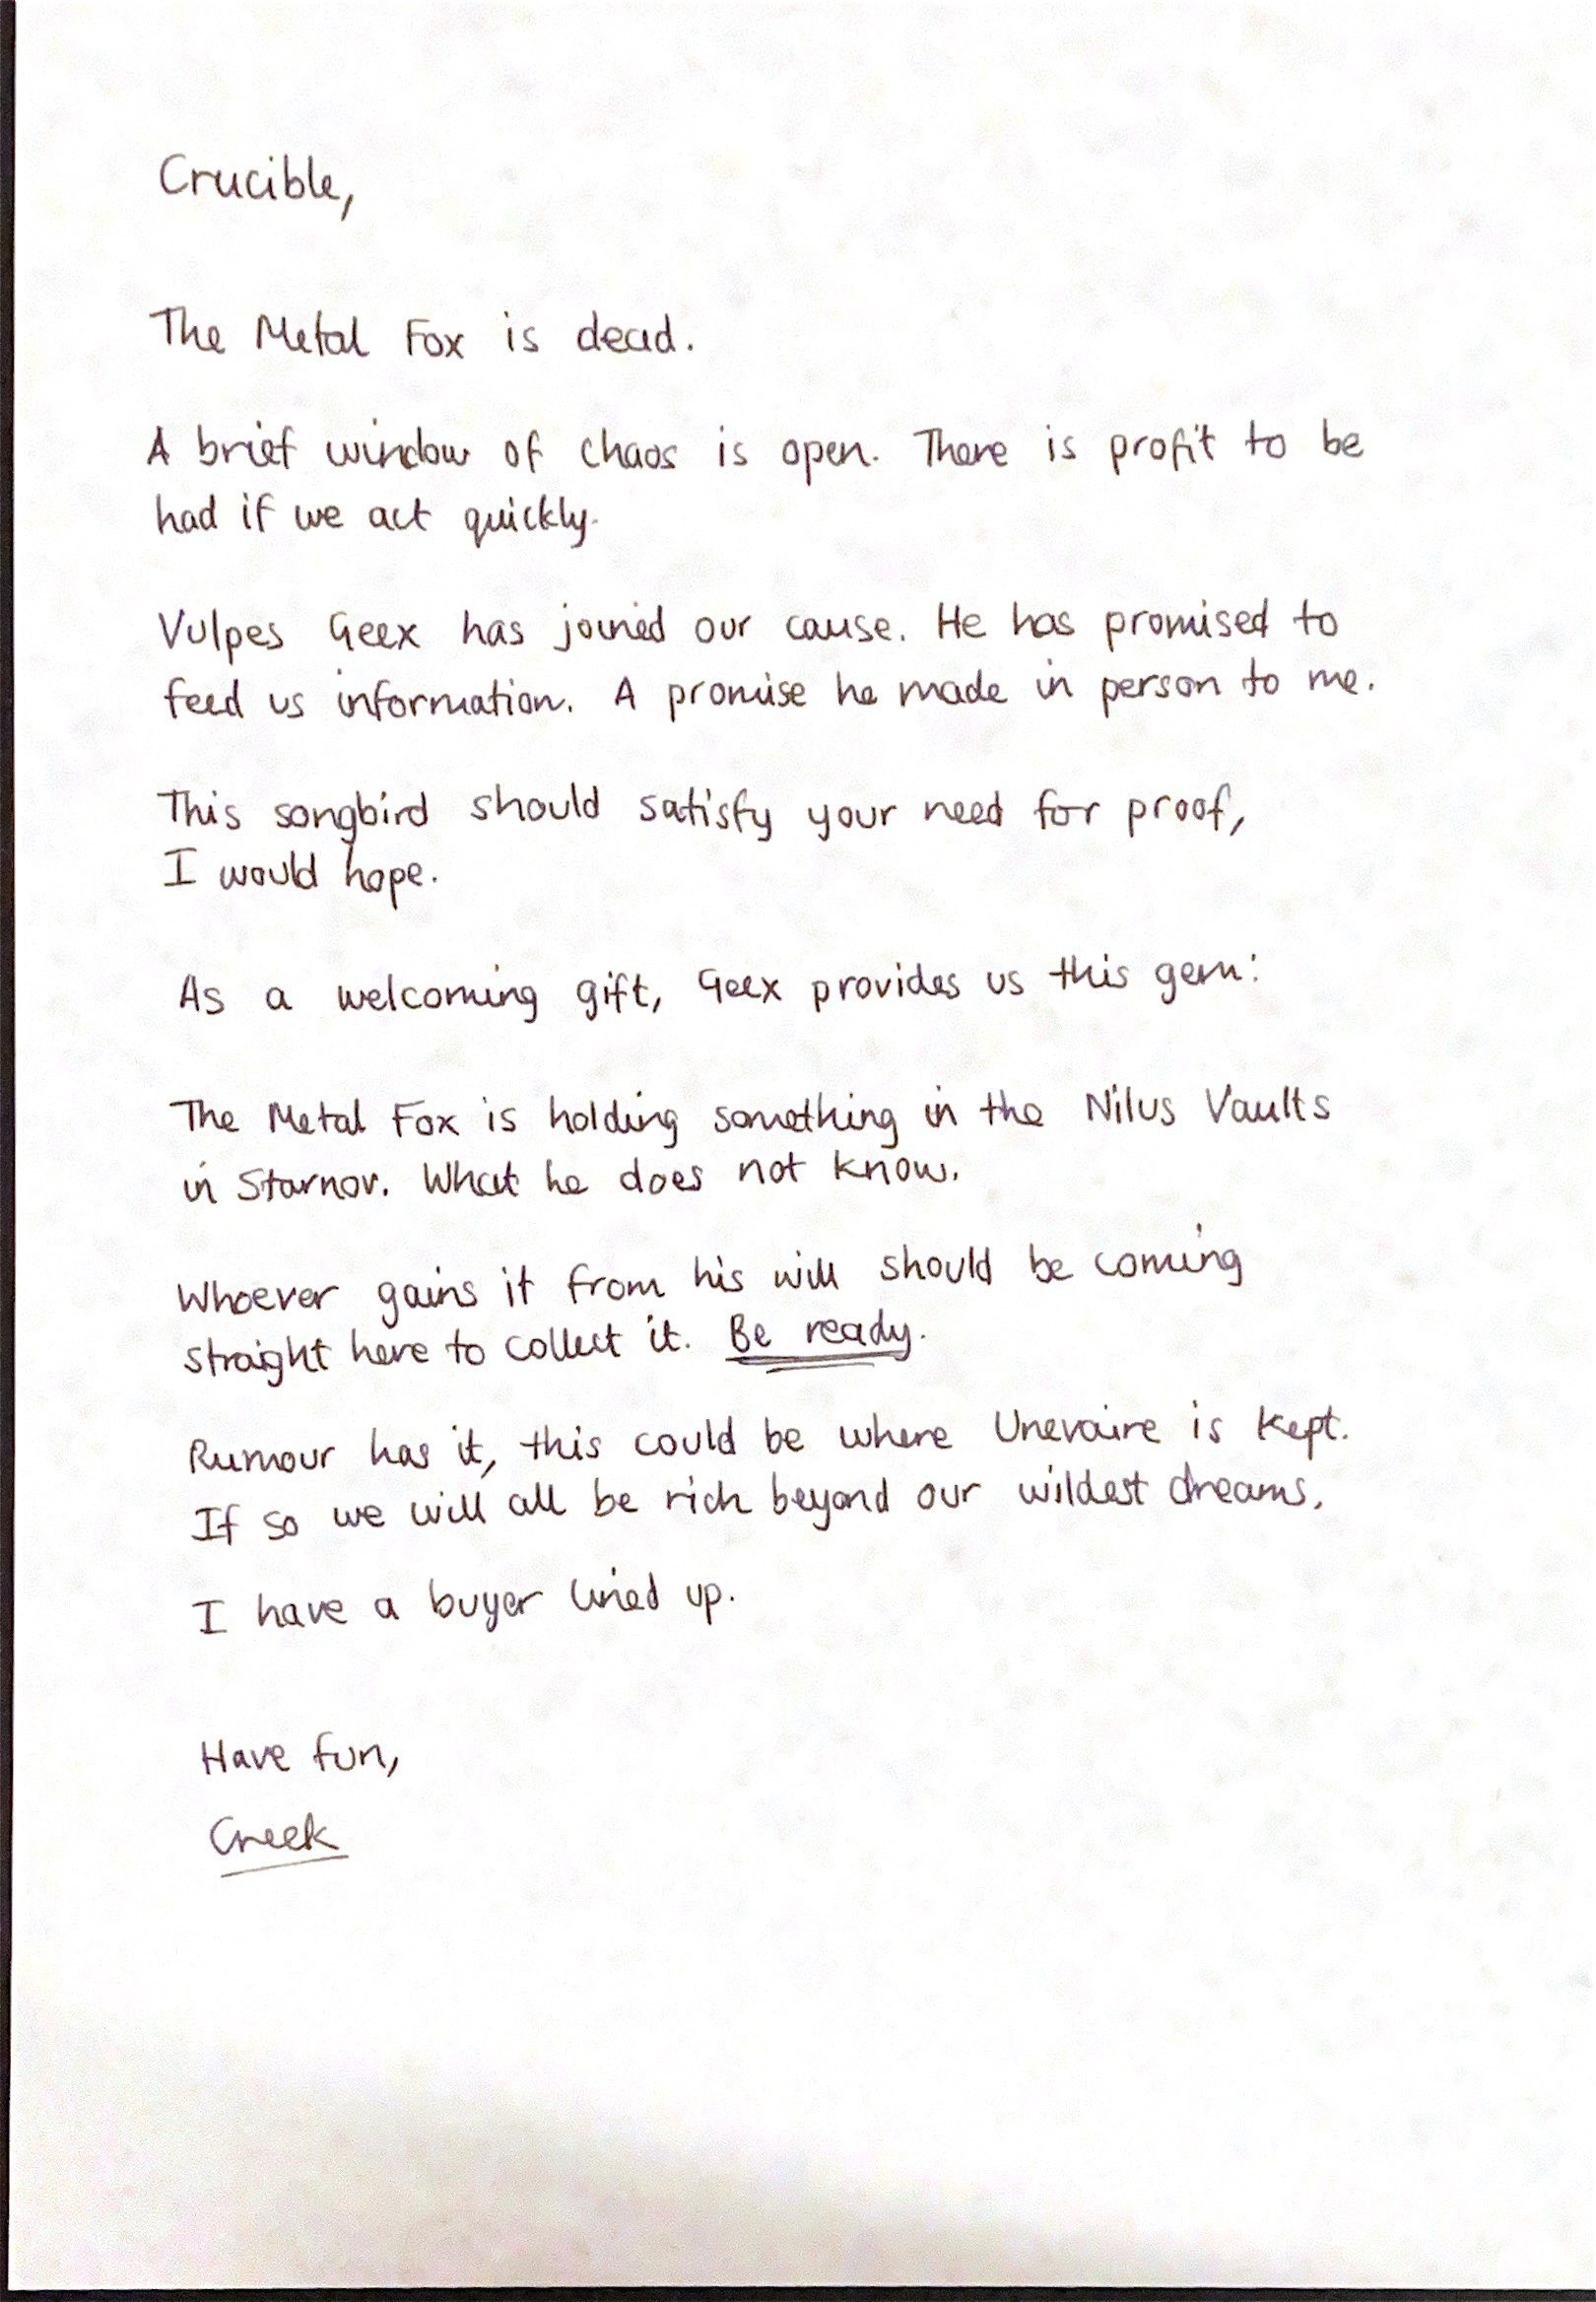 Crucible,
The Metal Fox is dead.
A brief window of chaos is open. There is profit to be
had if we act quickly.
Vulpes Geex has joined our cause. He has promised to
feed us information. A promise he made in person to me.
This songbird should satisfy your need for proof,
I would hope.
As a welcoming gift, Geex provides us this gem:
The Metal Fox is holding something in the Nilus Vaults
in Starnov. What he does not know.
Whoever gains it from his will should be coming
straight here to collect it. Be ready.
Rumour has it, this could be where Unevaire is kept.
If so we will all be rich beyond our wildest dreams.
I have a buyer lined up.
Have fun,
Creek